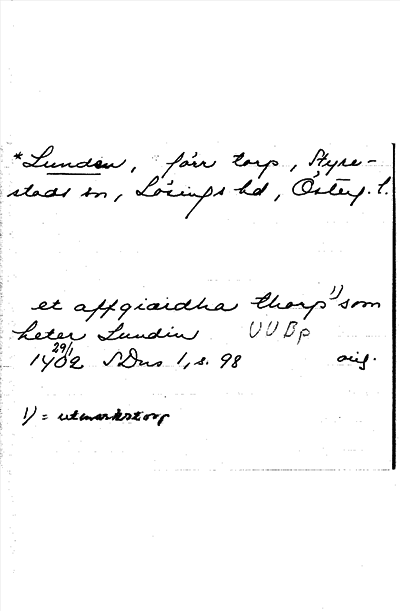 *Lunden, förr torp, Styre-
stads sn, Lösings hd, Österg. l.
et affgiærdha thorp 1) som
heter Lundin UUBp
1402 29/1 SDns 1, s. 98 orig.
1) = utmarkstorp